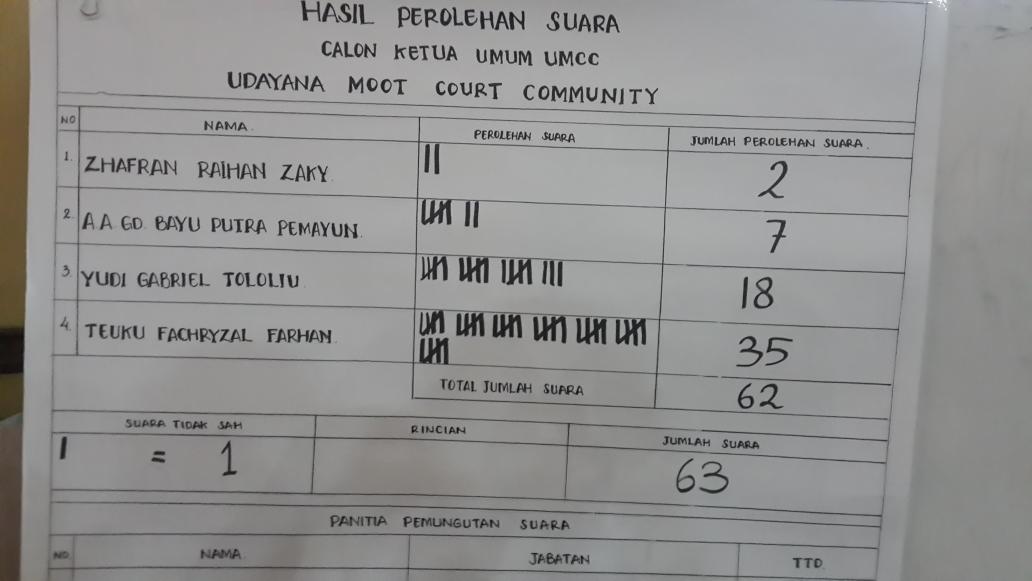 HASIL PEROLEHAN SUARA
CALON KETUA UMUM UMCC
UDAYANA MOOT COURT COMMUNITY
NO NAMA. PEROLEHAN SUARA JUMLAH PEROLEHAN SUARA.
1. ZHAFRAN RAIHAN ZAKY. 2
2. A.A GD. BAYU PUTRA PEMAYUN. 7
3. YUDI GABRIEL TOLOLIU 18
4. TEUKU FACHRYZAL FARHAN. 35
TOTAL JUMLAH SUARA 62
SUARA TIDAK SAH RINCIAN JUMLAH SUARA
I = 1 63
PANITIA PEMUNGUTAN SUARA
NO. NAMA. JABATAN TTD.